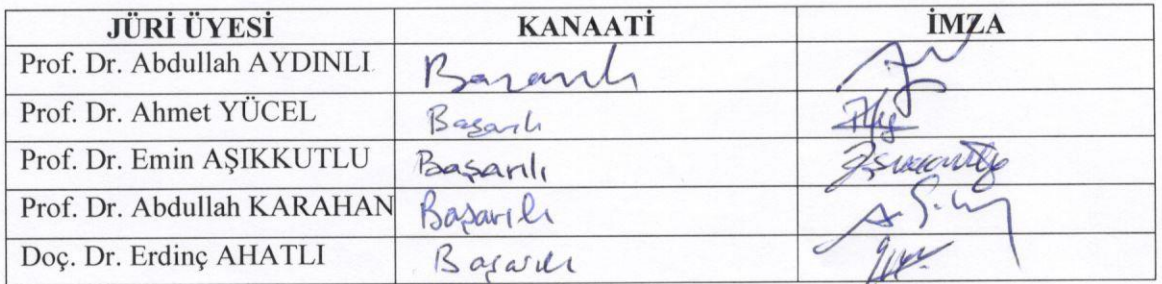 JÜRİ ÜYESİ KANAATİ İMZA
Prof. Dr. Abdullah AYDINLI Başarılı
Prof. Dr. Ahmet YÜCEL Başarılı
Prof. Dr. Emin AŞIKKUTLU Başarılı
Prof. Dr. Abdullah KARAHAN Başarılı
Doç. Dr. Erdinç AHATLI Başarılı